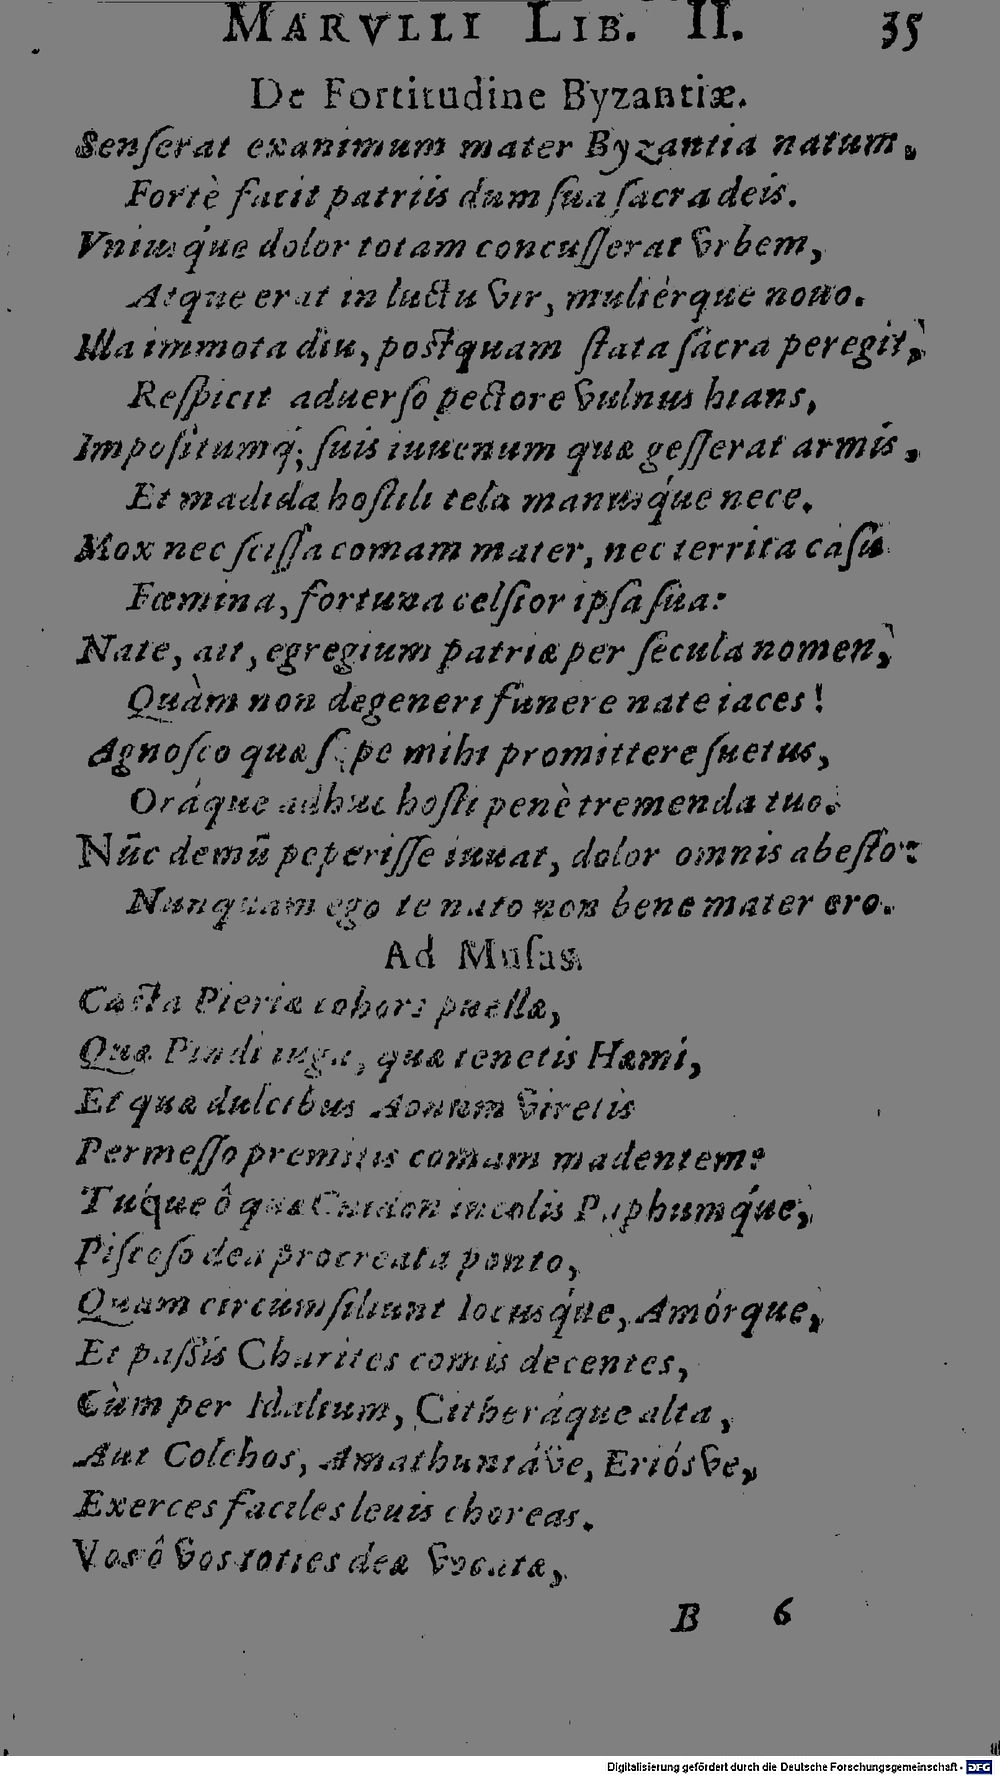 MARVLLI LIB. II. 35
De Fortitudine Byzantiæ.
Senſerat exanimum mater Byzantia natum.
Fortè facit patriis dum ſua ſacra deis.
Vniusq́ue dolor totam concuſſerat vrbem,
Atque erat in luctu vir, muliérque nouo.
Illa immota diu, poſtquam ſtata ſacra peregit,
Reſpicit aduerſo pectore vulnus hians,
Impoſitumq́; ſuis iuuenum quæ geſſerat armis,
Et madida hoſtili tela manusq́ue nece.
Mox nec ſciſſa comam mater, nec territa caſu
Fœmina, fortuna celſior ipſa ſua:
Nate, ait, egregium patriæ per ſecula nomen,
Quàm non degeneri funere nate iaces!
Agnoſco quæ ſæpe mihi promittere ſuetus,
Oráque adhuc hoſti penè tremenda tuo.
Nūc demū peperiſſe iuuat, dolor omnis abeſto:
Nunquam ego te nato non bene mater ero.
Ad Muſas.
Caſta Pieriæ cohors puellæ,
Quæ Pindi iuga, quæ tenetis Hæmi,
Et quæ dulcibus Aonum viretis
Permeſſo premitis comam madentem:
Tuq́ue ô quæ Cnidon incolis Paphumq́ue,
Piſcoſo dea procreata ponto,
Quam circumſiliunt Iocusq́ue, Amórque,
Et paſſis Charites comis decentes,
Cùm per Idalium, Citheráque alta,
Aut Colchos, Amathuntáve, Eriósve,
Exerces faciles leuis choreas.
Vos ô vos toties deæ vocatæ,
B 6
Digitalisierung gefördert durch die Deutsche Forschungsgemeinschaft - DFG